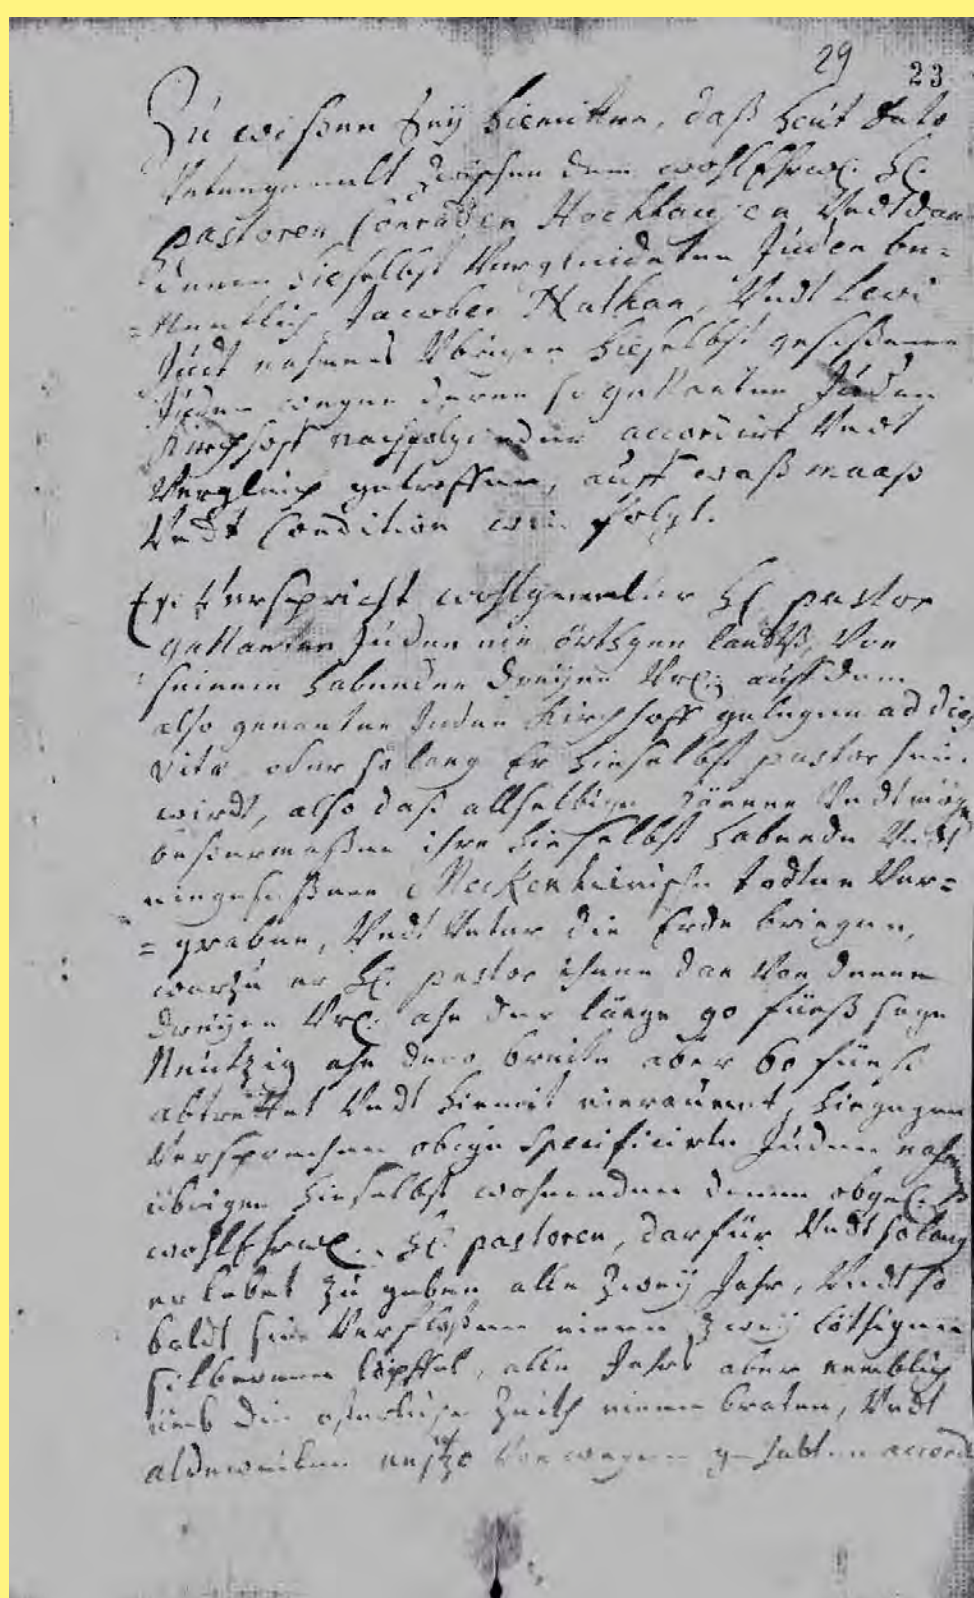 29 23
Zu wißen seÿ hiemitten, daß heut dato
Untengemelt zwischen dem wohlEhrw: H:
pastoren Conraden Hochhausen Undt dan
denen hieselbst Verglaideten Juden be-
=nentlich Jacoben Nathan, Undt Levi
Judt nahmens Übrigen hieselbst geseßenen
Juden wegen deren so genanten Juden
Kirchhoff nachfolgender accordirt Undt
Vergleich getroffen, auff waß maaß
Undt Condition wie folgt.
Es Verspricht wohlgemelter H: pastor
genanten Juden ein örthgen landtß, Von
seinem habenden dreÿen Vrl: auff dem
also genanten Juden Kirchhoff gelegen ad dies
vitæ oder so lang Er hieselbst pastor sein
wirdt, also daß allselbige können Undt mög
ihre hieselbst habende Undt
eingeseßene Meckenheimische todten Ver=
=graben, Undt Unter die Erde bringen,
warzu er H: pastor ihnen dan Von denen
dreÿen Vrl: ahn der länge 90 fueß sage
Neuntzig ahn dero breite aber 60 fueß
abtrettet Undt hiemit einraumt, hingegen
Versprechen obige specificirte Juden nahmens
übrigen hieselbst wohnenden denen obgel:
wohlEhrw: H: pastoren, darfür Undt so lang
er lebet zu geben alle zweÿ Jahr, Undt so
baldt sie Verfloßen einen zweÿ löthigen
silbernen löpffel, alle Jahrs aber nemblich
umb die osterliche Zeith einen braten, Undt
aldeweilen jetzo Von wegen gehabten accords